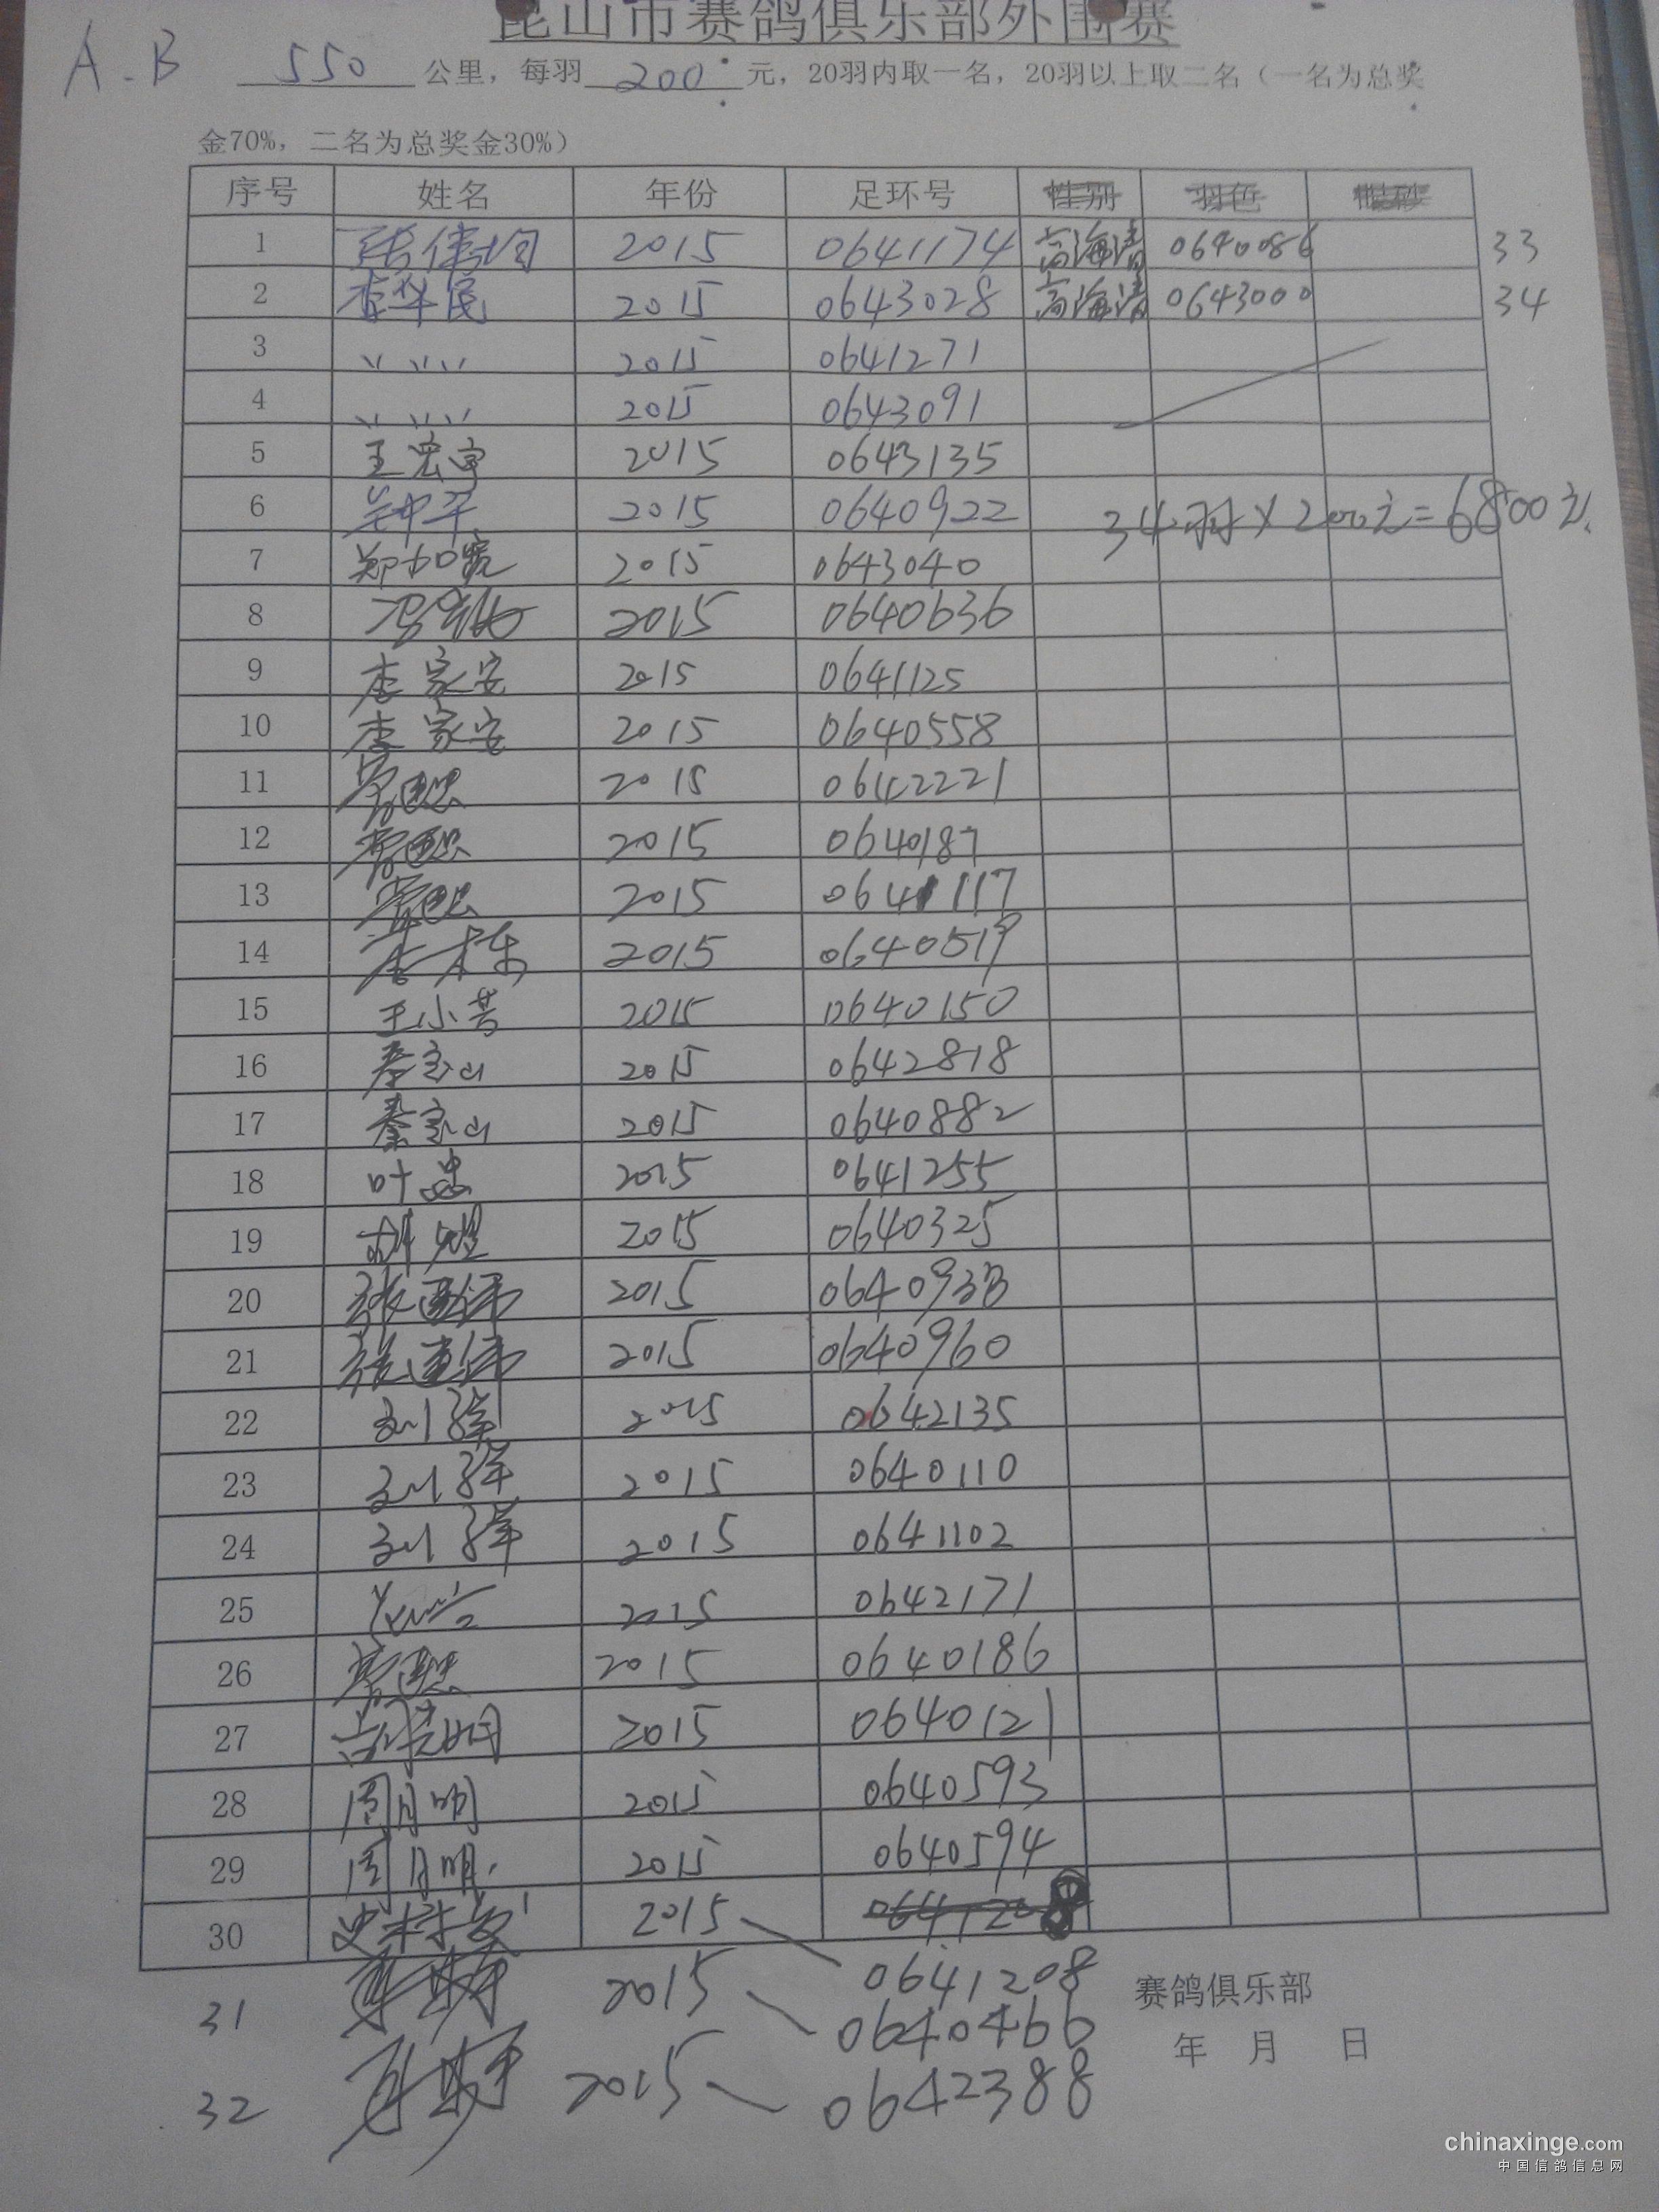 昆山市赛鸽俱乐部外围赛
A.B 550 公里，每羽 200 元，20羽内取一名，20羽以上取二名（一名为总奖
金70%，二名为总奖金30%）
序号 姓名 年份 足环号 性别 羽色
1 张伟均 2015 0641174 高海清 0640086 33
2 李华民 2015 0643028 高海清 0643000 34
3 〃 〃 2015 0641271
4 〃 〃 2015 0643091
5 王宏宇 2015 0643135
6 2015 0640922 34羽×200元=6800元
7 郑加宽 2015 0643040
8 2015 0640636
9 李家安 2015 0641125
10 李家安 2015 0640558
11 2015 0642221
12 2015 0640187
13 2015 0641117
14 李栋 2015 0640519
15 王小芳 2015 0640150
16 秦宝山 2015 0642818
17 秦宝山 2015 0640882
18 叶忠 2015 0641255
19 2015 0640325
20 张建伟 2015 0640938
21 张建伟 2015 0640960
22 刘辉 2015 0642135
23 刘辉 2015 0640110
24 刘辉 2015 0641102
25 2015 0642171
26 2015 0640186
27 2015 0640121
28 周月明 2015 0640593
29 周月明 2015 0640594
30 2015 0641208
0641208
31 2015 0640466
32 2015 0642388
赛鸽俱乐部
年 月 日
chinaxinge.com
中国信鸽信息网